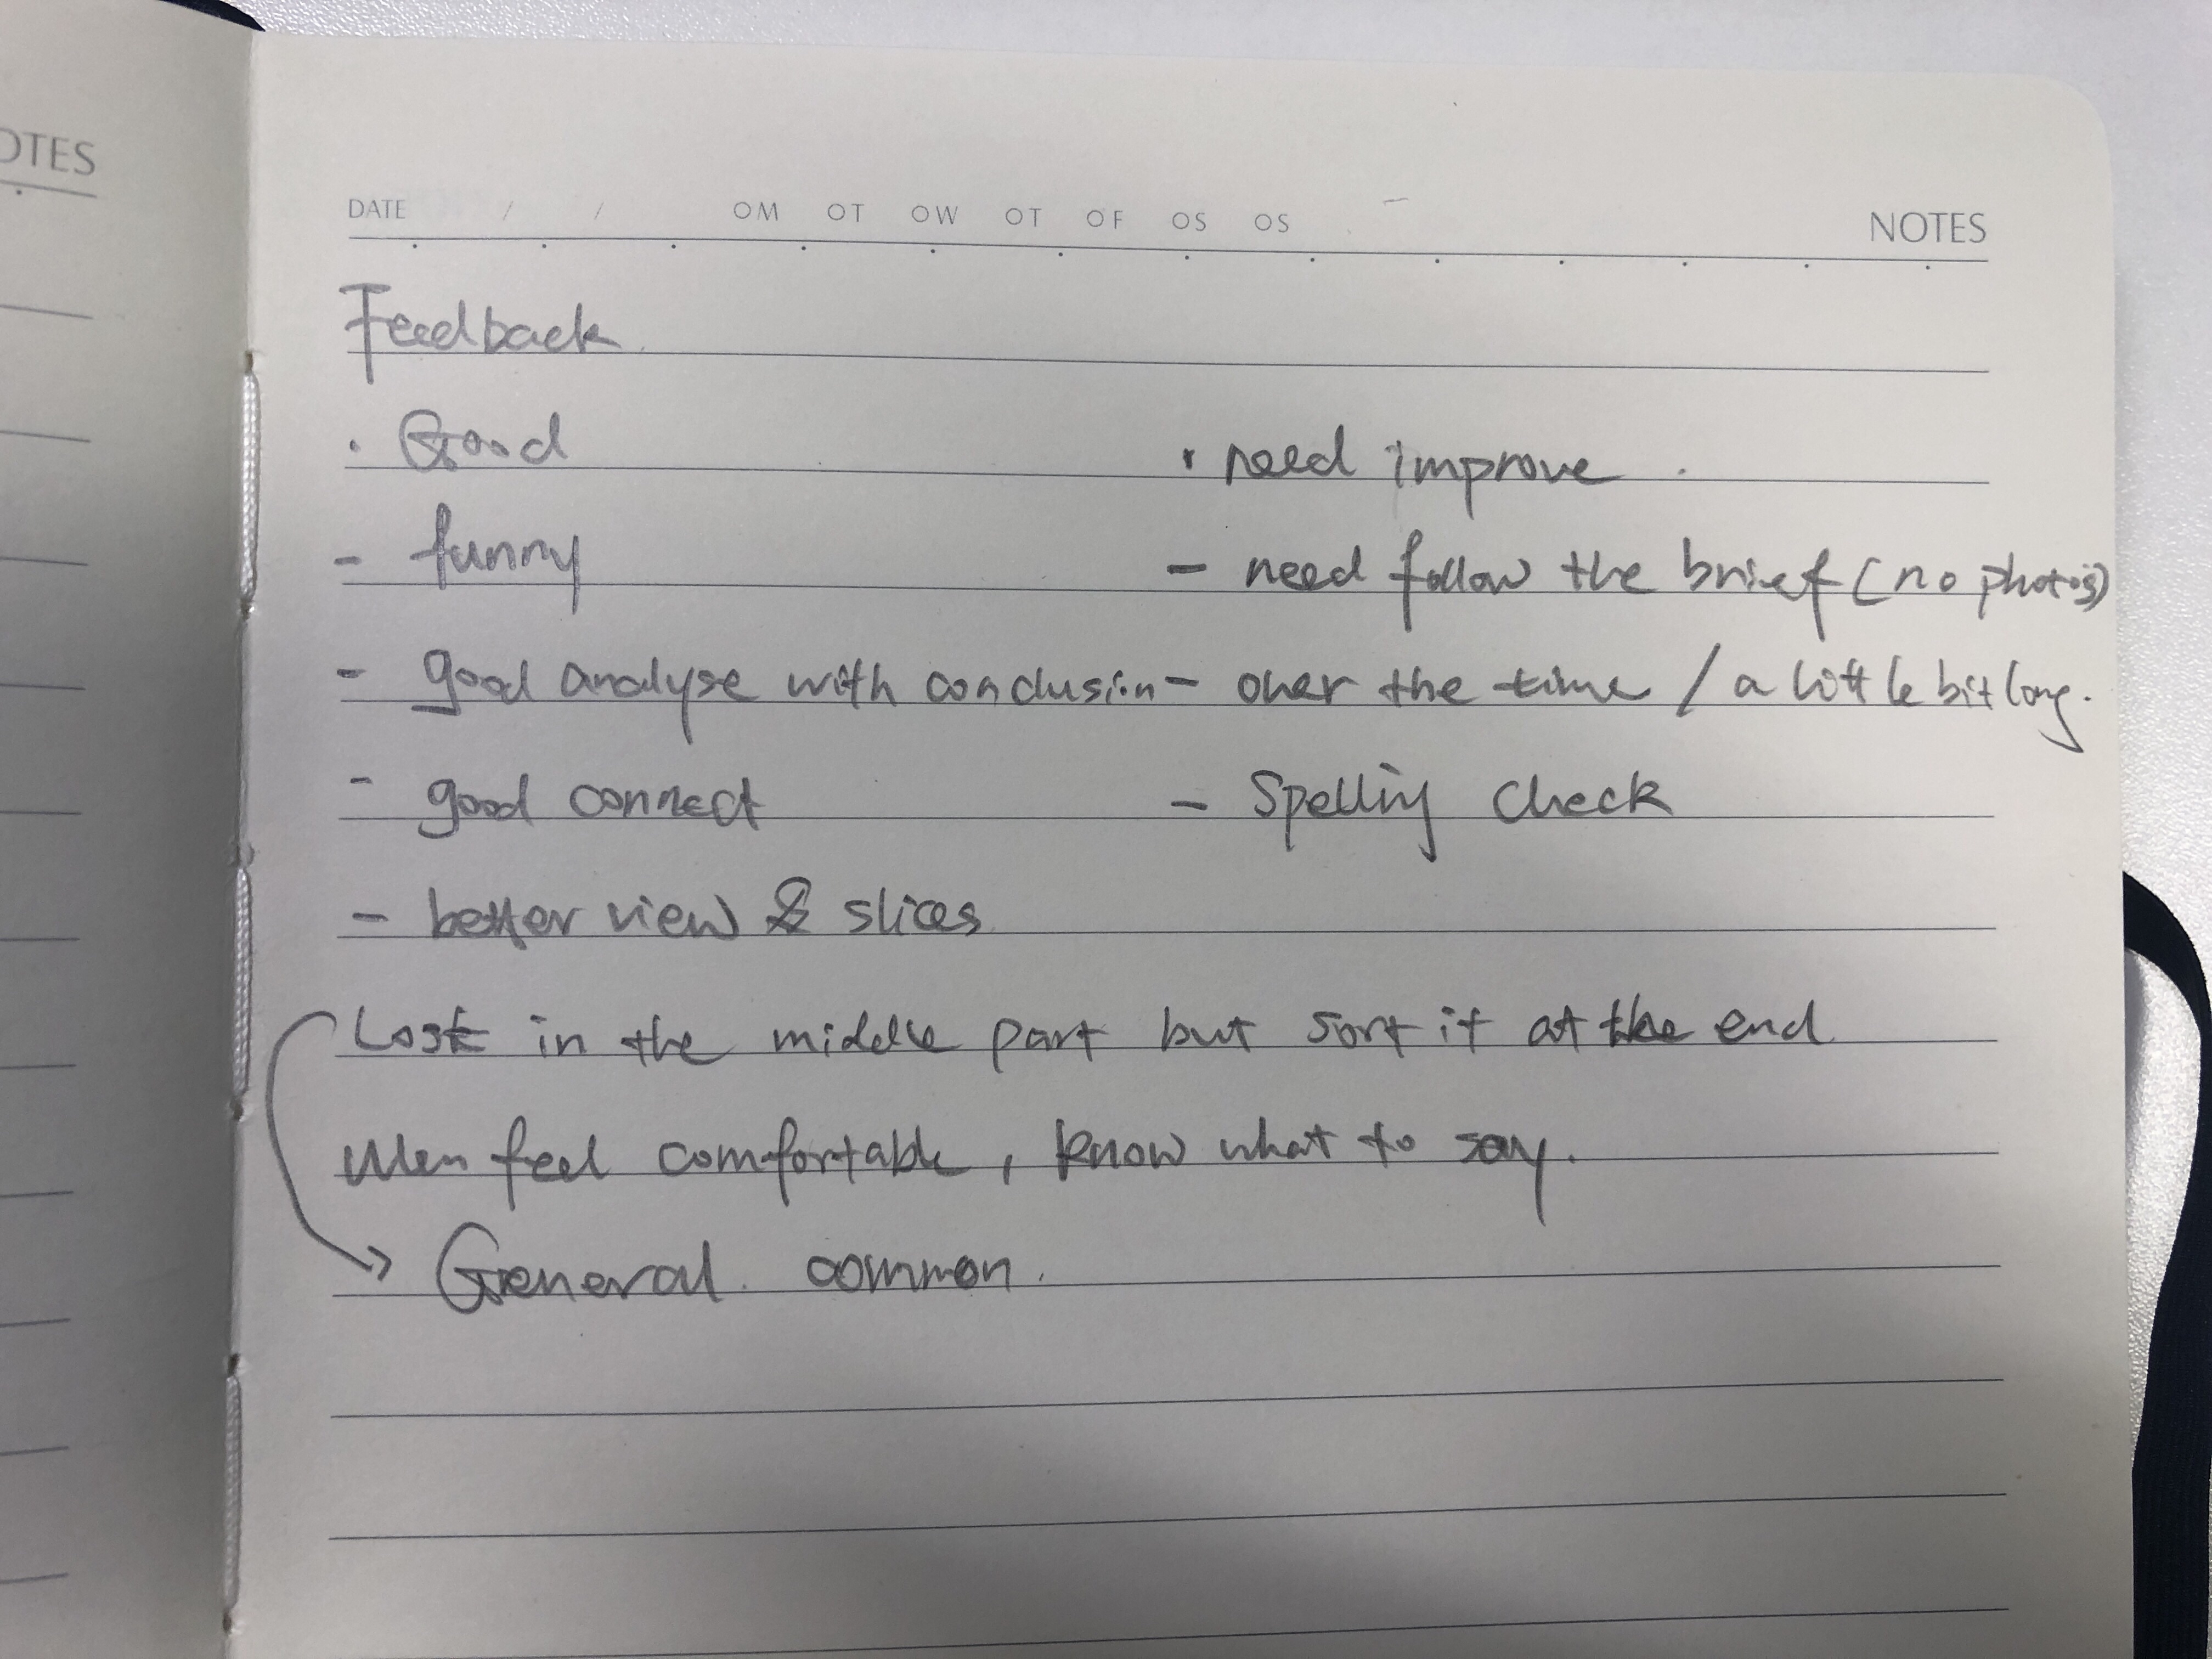 OTES
DATE / / OM OT OW OT OF OS OS NOTES
Feedback
· Good
- funny
- good analyse with conclusion
- good connect
- better view & slices
· need improve.
- need follow the brief (no photos)
- over the time / a little bit long.
- Spelling check
Lost in the middle part but sort it at the end
When feel comfortable, know what to say.
→ General common.